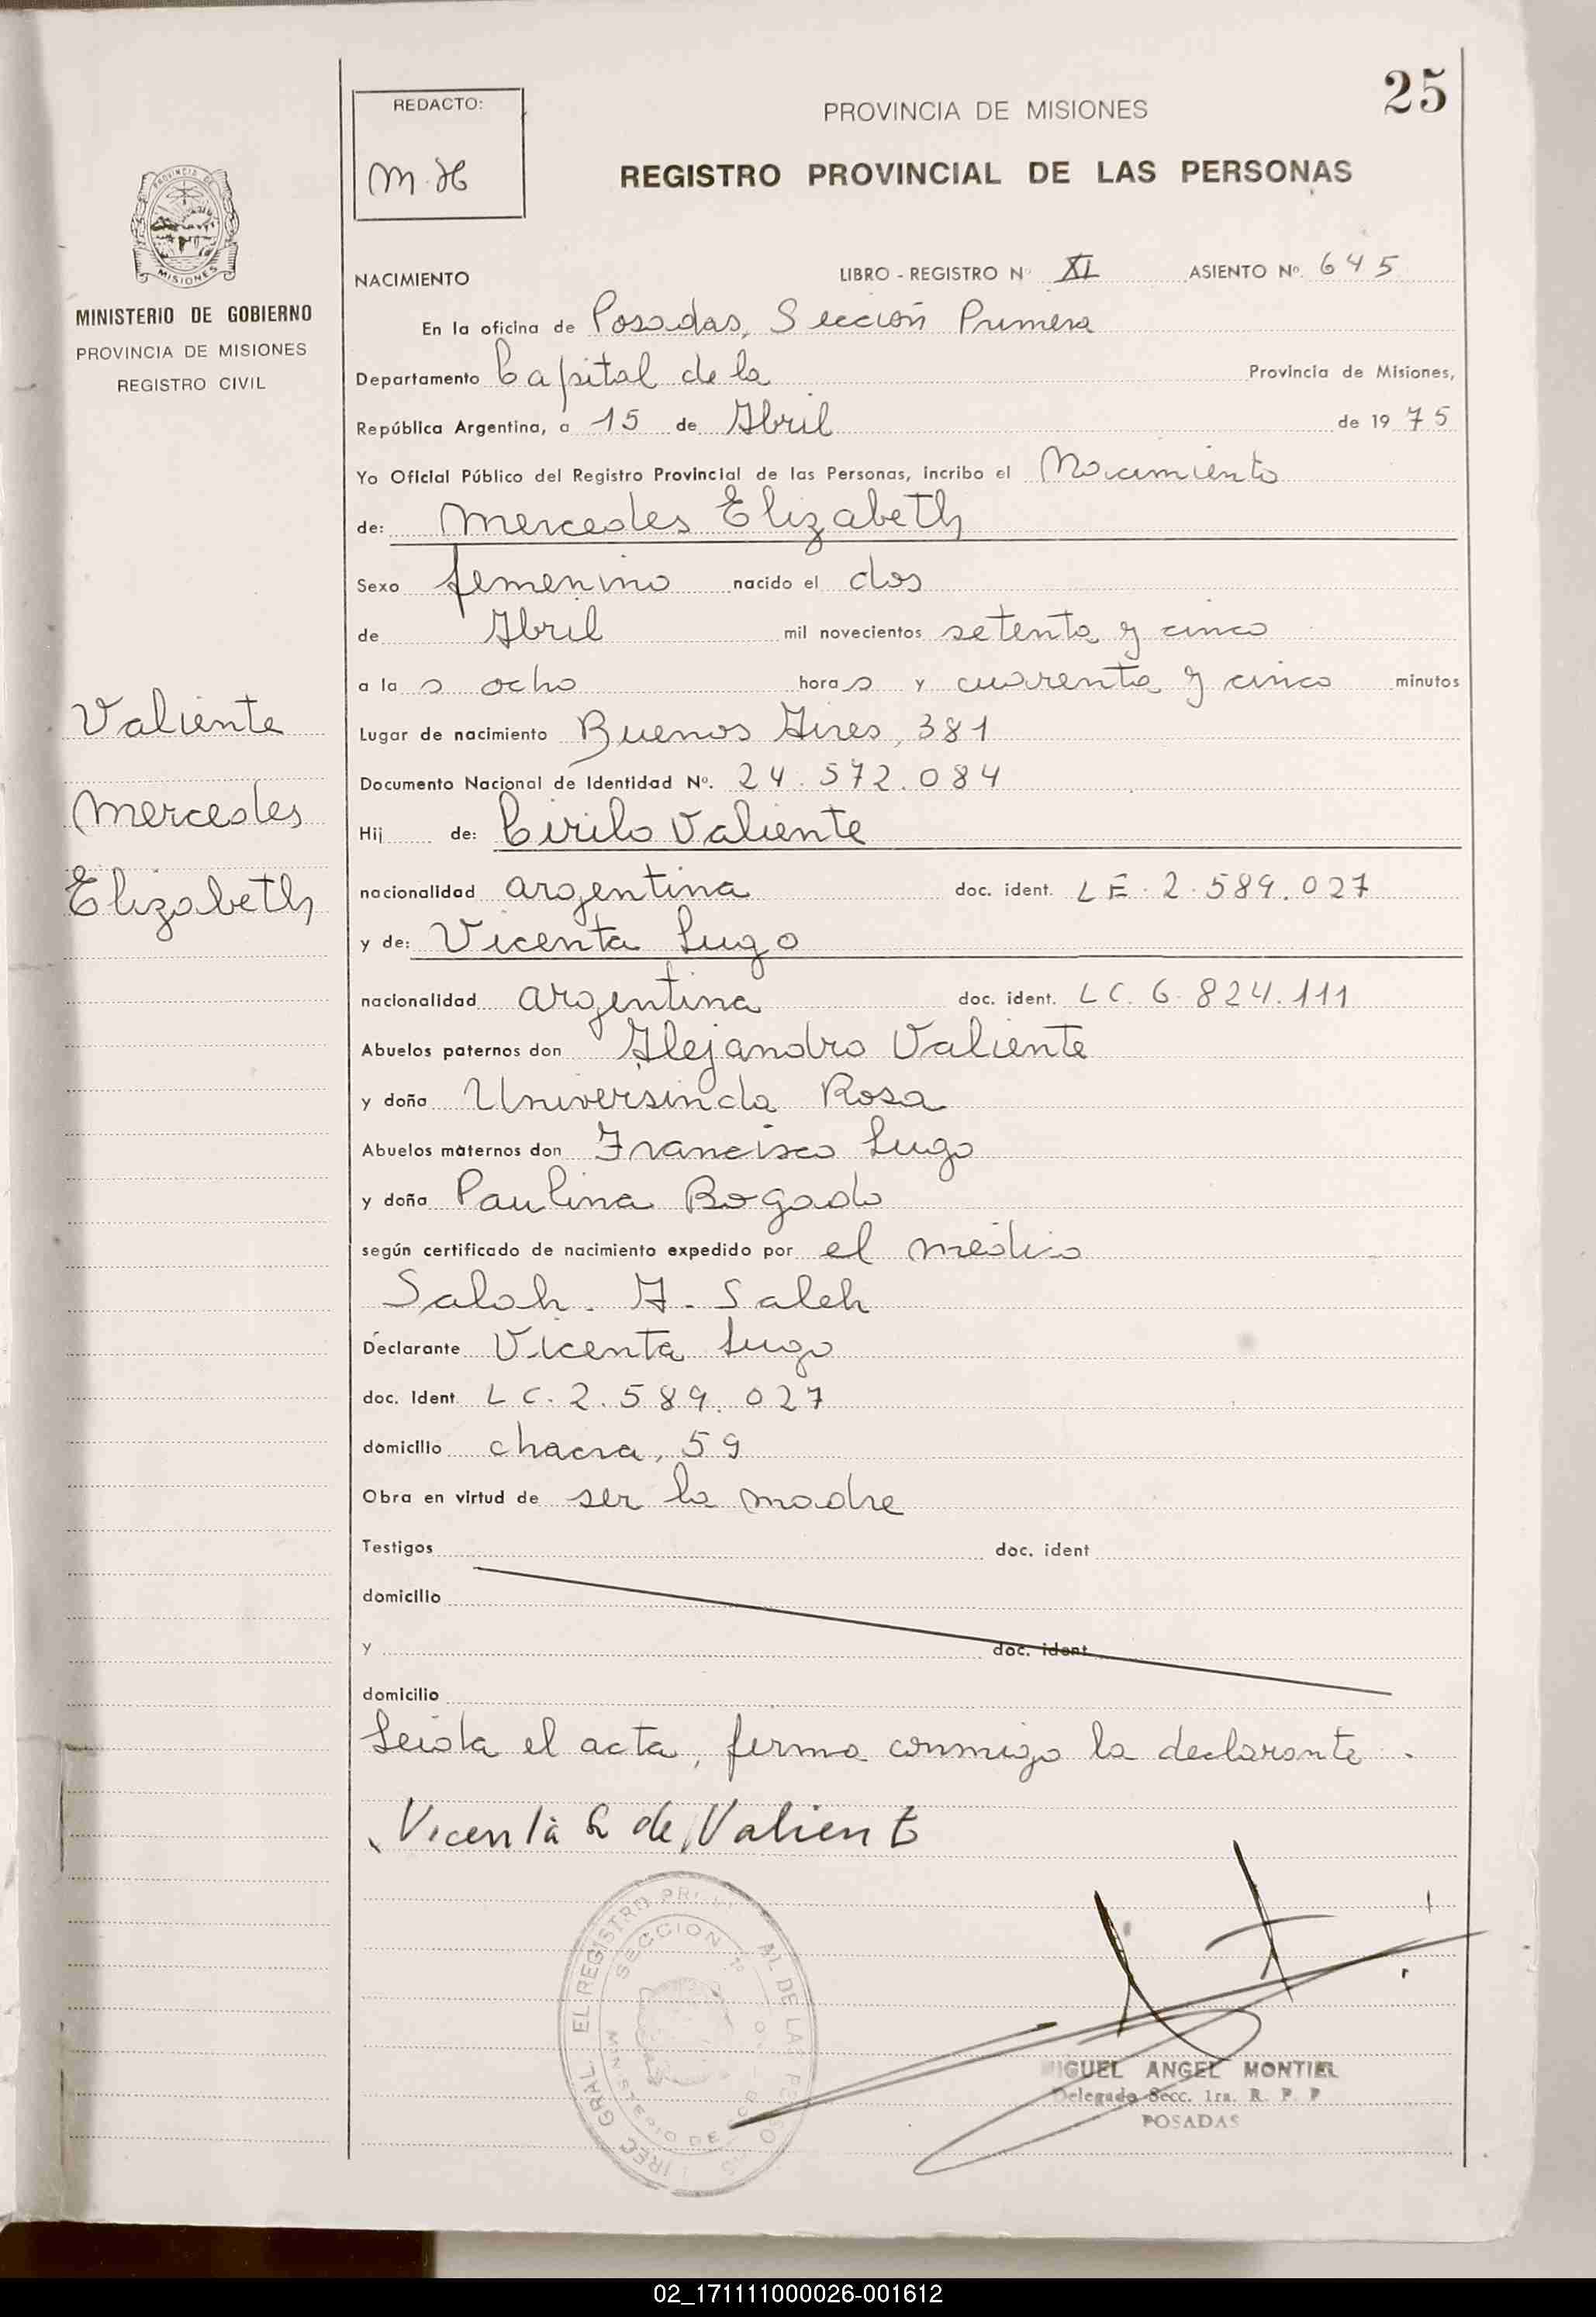 25
REDACTO:
M. H
PROVINCIA DE MISIONES
REGISTRO PROVINCIAL DE LAS PERSONAS
MISIONES
MINISTERIO DE GOBIERNO
PROVINCIA DE MISIONES
REGISTRO CIVIL
Valiente
Mercedes
Elizabeth
NACIMIENTO LIBRO - REGISTRO Nº XI ASIENTO Nº. 645
En la oficina de Posadas, Sección Primera
Departamento Capital de la Provincia de Misiones,
República Argentina, a 15 de Abril de 1975
Yo Oficial Público del Registro Provincial de las Personas, incribo el Nacimiento
de: Mercedes Elizabeth
Sexo femenino nacido el dos
de Abril mil novecientos setenta y cinco
a la s ocho horas y cuarenta y cinco minutos
Lugar de nacimiento Buenos Aires, 381
Documento Nacional de Identidad Nº. 24.572.084
Hij de: Cirilo Valiente
nacionalidad argentina doc. ident. LE. 2.589.027
y de: Vicenta Lugo
nacionalidad argentina doc. ident. LC. 6.824.111
Abuelos paternos don Alejandro Valiente
y doña Universinda Rosa
Abuelos maternos don Francisco Lugo
y doña Paulina Bogado
según certificado de nacimiento expedido por el médico
Saloh. A. Saleh
Declarante Vicenta Lugo
doc. Ident. LC. 2.589.027
domicilio chacra, 59
Obra en virtud de ser la madre
Testigos doc. ident
domicilio
y doc. ident
domicilio
Leida el acta, firma conmigo la declarante.
Vicenta L de Valiente
SECCION 1º
MIGUEL ANGEL MONTIEL
Delegado Secc. 1ra. R. P. P
POSADAS
02_171111000026-001612